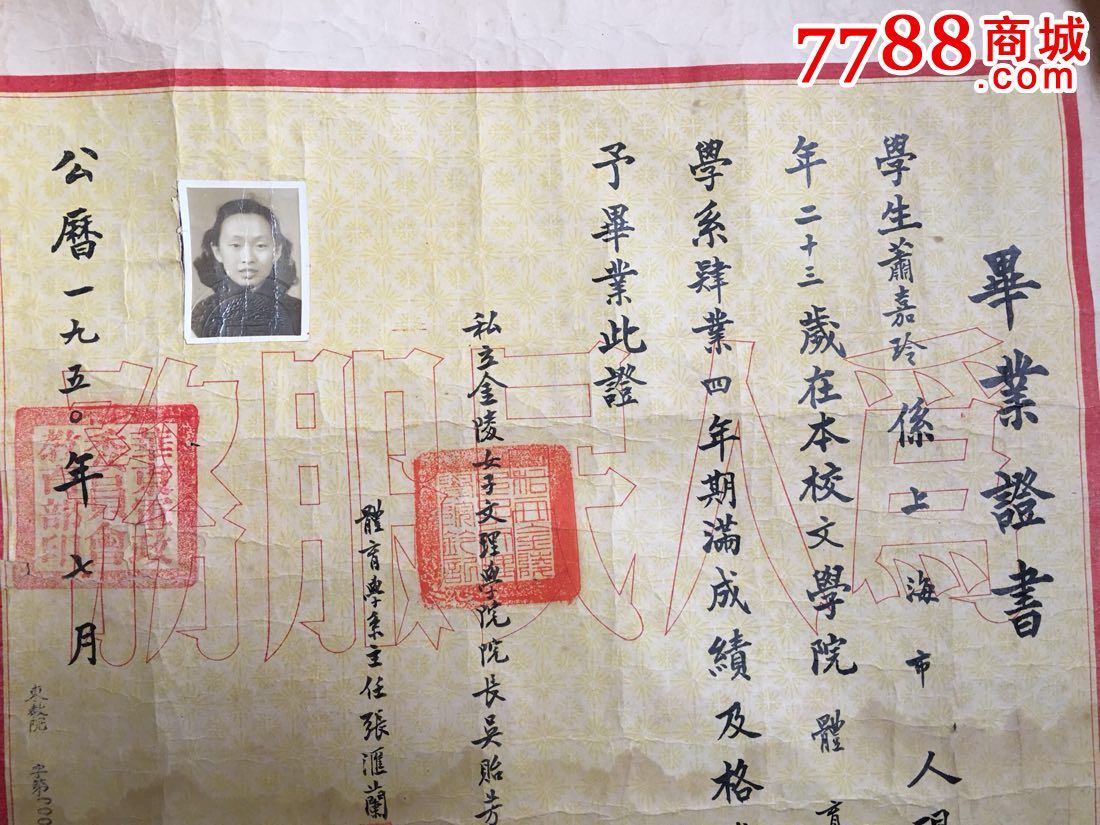 7788商城
.com
畢業證書
學生蕭嘉玲係上海市人現
年二十三歲在本校文學院體育
學系肄業四年期滿成績及格
予畢業此證
私立金陵女子文理學院院長吳貽芳
體育學系主任張滙蘭
公曆一九五〇年七月
東教院字第
為人民服務
教育部印